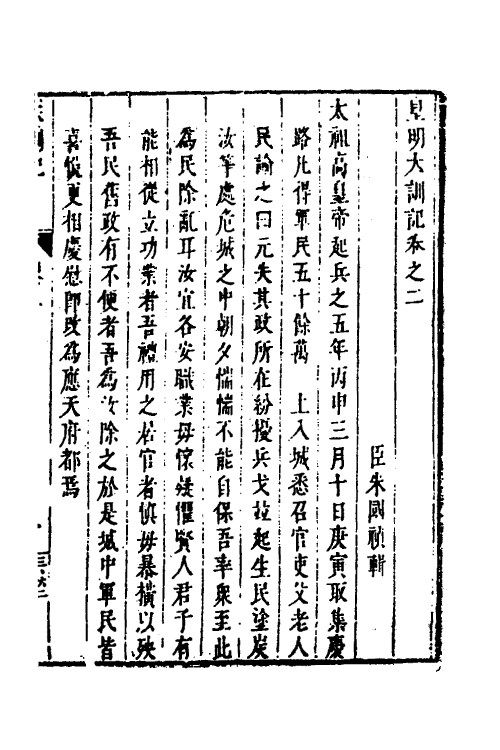 皇明大訓記卷之二
臣朱國禎輯
太祖高皇帝起兵之五年丙申三月十日庚寅取集慶
路凡得軍民五十餘萬　上入城悉召官吏父老人
民諭之曰元失其政所在紛擾兵戈並起生民塗炭
汝等處危城之中朝夕惴惴不能自保吾率衆至此
為民除亂耳汝宜各安職業毋懷疑懼賢人君子有
能相從立功業者吾禮用之居官者慎毋暴橫以殃
吾民舊政有不便者吾為汝除之於是城中軍民皆
喜悅更相慶慰即改為應天府都焉